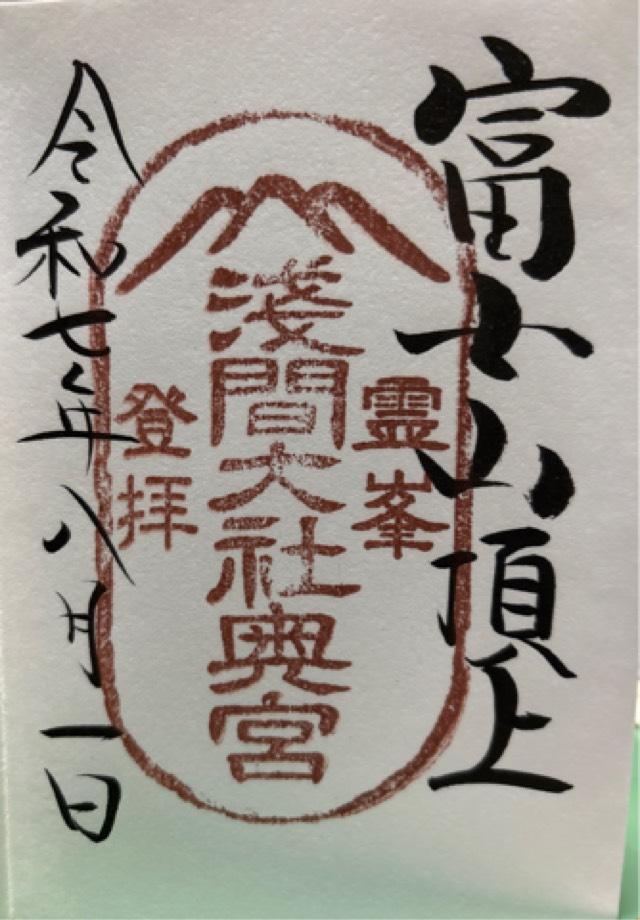 富士山頂上
霊峯
淺間大社奥宮
登拝
令和七年八月一日